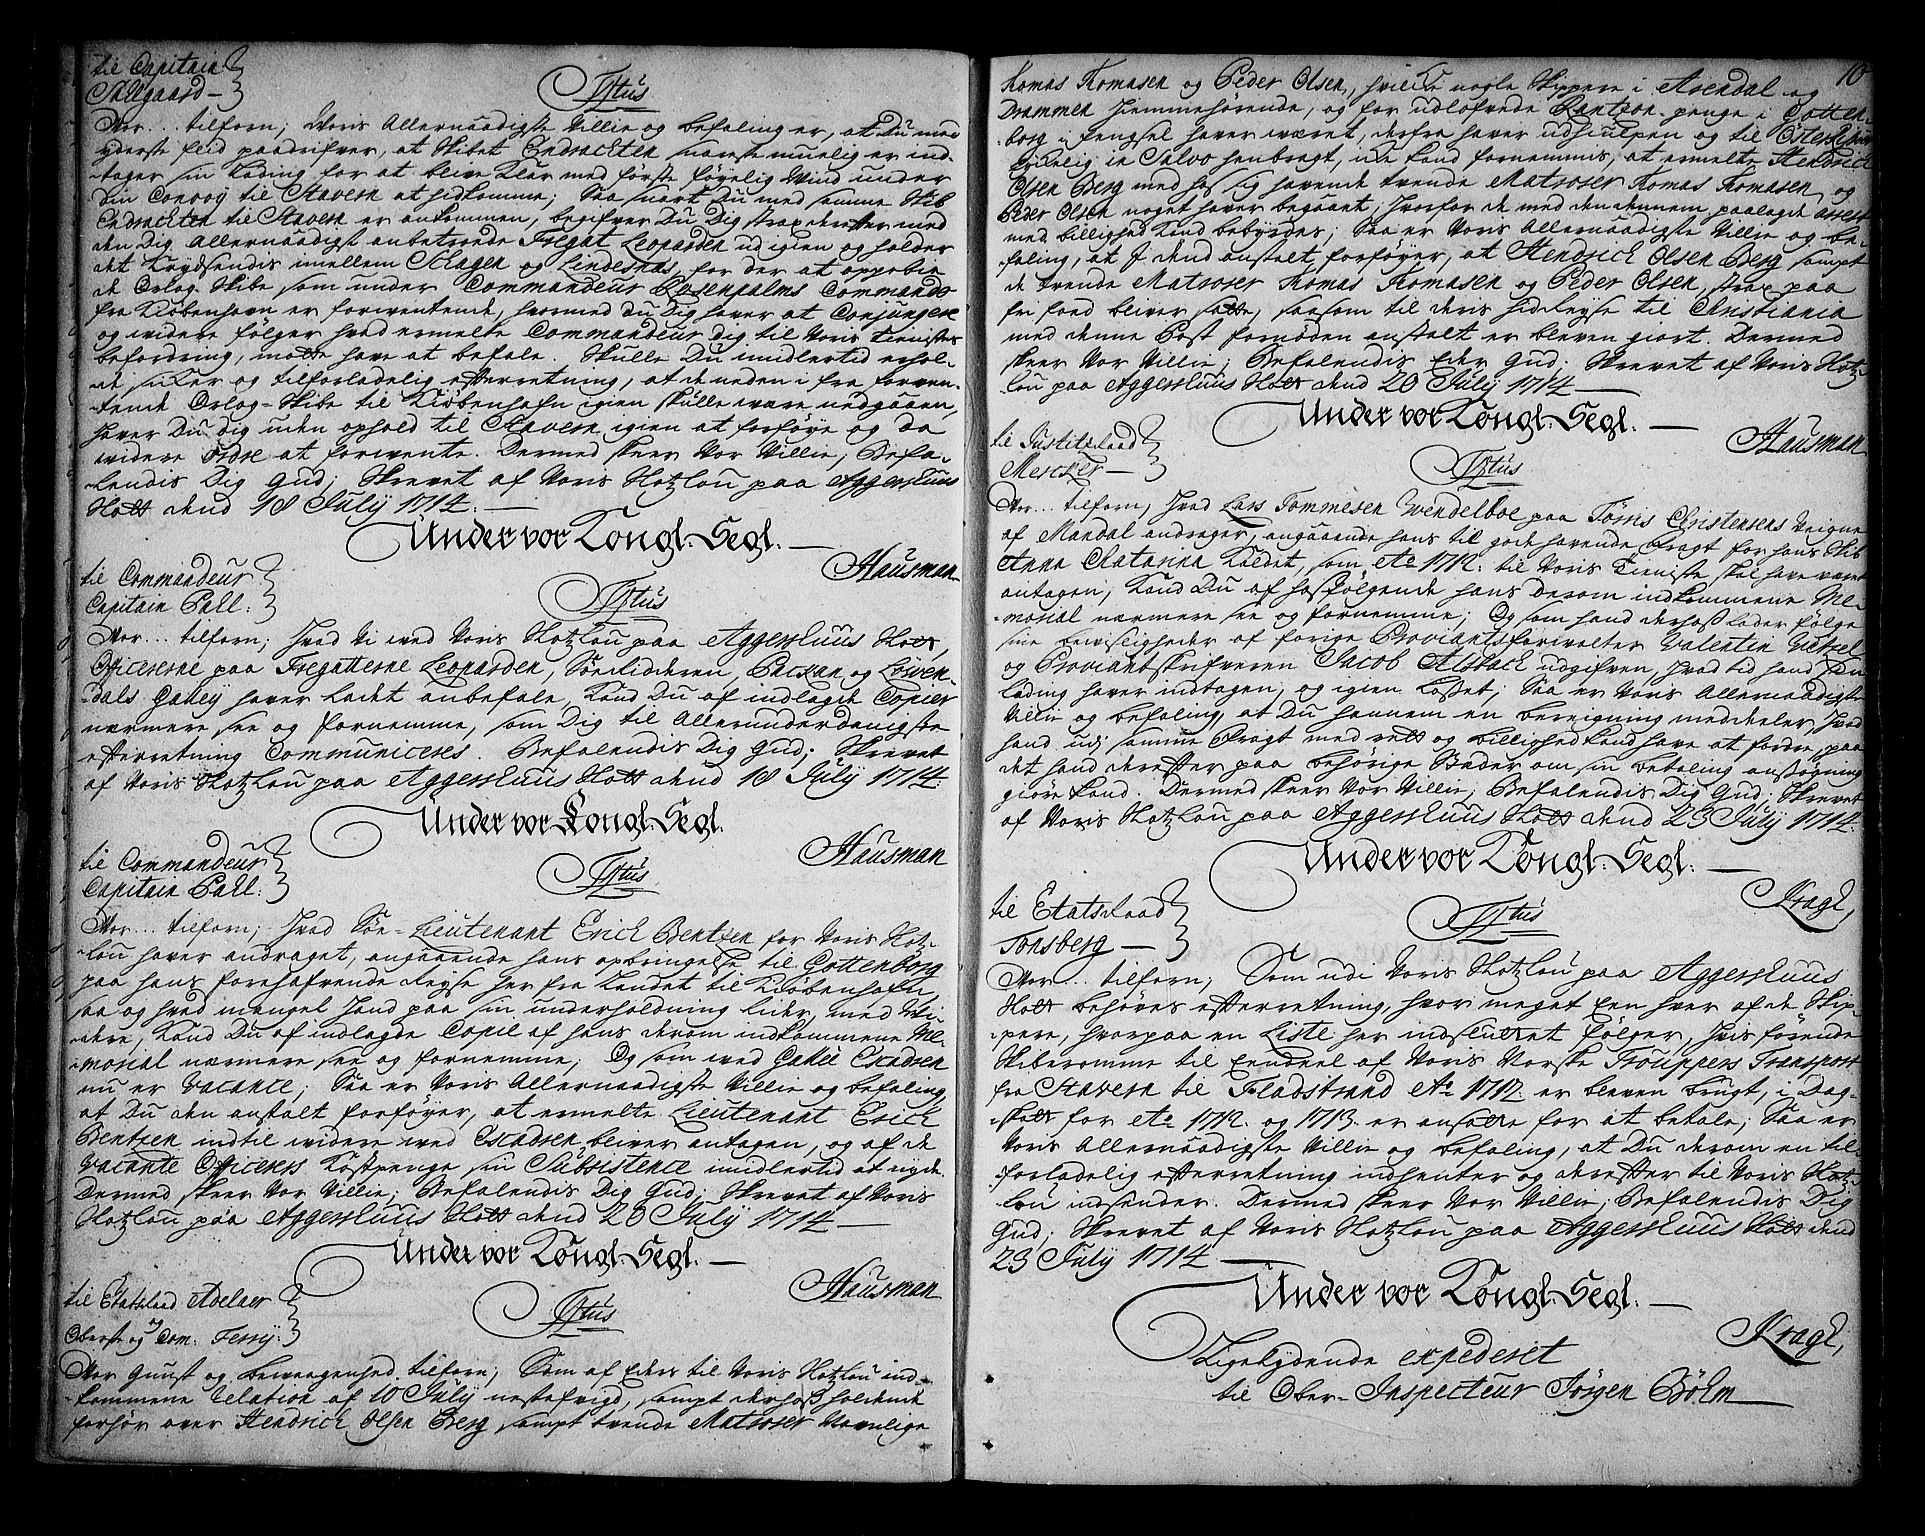 til Capitain
Sallgaard –
Tjtus
Vor... tilforn; Voris Allernaadigste Villie og befaling er, at Du med
yderste flid paadrifver, at Skibet Endrachten snarest muelig er ind-
-tager sin Lading for at blive klar med første føyelig Vind under
din Convoy til Stavern at hidkomme; Saa snart Du med samme Skib
Endrachten til Stavern er ankommen, begifver Du Dig strax derefter med
den Dig Allernaadigst anbetroede Fregat Leoparden ud igien og holder
det Krydsendis imellem Schagen og Lindesnæs, for der at oppebie
de Orlog-Skibe som under Commandeur Rosenpalms Commando
fra Kiøbenhavn er forventende, hvormed Du Dig haver at Conjungere
og widere følger hvad ermelte Commandeur dig til Voris Tienistes
befordring, motte have at befale. Skulle Du imidlertid erhol-
-de sicker og tilforladelig efterretning, at de neden i fra forven-
-tende Orlog-Skibe til Kiøbenhafn igien skulle være nedgaaen,
haver Du dig uden ophold til Stavern igien at forføye og da
widere Ordre at forwente. Dermed skeer Vor Villie; Befa-
-lendis Dig Gud; Skrevet af Voris Slotzlou paa Aggershuus
Slott dend 18 July 1714. —
Under vor Kongl. Segl. —
Hausman
til Commandeur
Capitain Pall.
Tjtus
Vor... tilforn; Hvad Vi ved Voris Slotzlou paa Aggershuus Slott,
Officererne paa Fregatterne Leoparden, Søe Ridderen, Packan og Løwen-
-dals Galley haver ladet anbefale, kand Du af indlagde Copier
nærmere see og fornemme, som Dig til Allerunderdanigste
efterretning Communiceres. Befalendis Dig Gud; Skrevet
af Voris Slotzlou paa Aggershuus Slott dend 18 July 1714.
Under vor Kongl. Segl.
Hausman
til Commandeur
Capitain Pall.
Tjtus
Vor... tilforn; Hvad Søe-Lieutenant Erich Bentzen for Voris Slotz-
-lou haver andraget, angaaende hans opbringelse til Gottenborg
paa hans forehafvende Reyse her fra Landet til Kiøbenhafn
saa og hvad mangel hand paa sin underholdning lider, med Vi-
-dere, kand Du af indlagde Copie af hans derom indkommene Me-
-morial nærmere see og fornemme; Og som ved Galei Escadren
nu er Vacante; Saa er Voris Allernaadigste Villie og befaling,
at Du den anstalt forføyer, at ermelte Lieutenant Erich
Bentzen indtil widere ved Escadren bliver antagen, og af de
Vacante Officerers Kostpenge sin Subsistence imidlertid at nyde.
Dermed skeer Vor Villie; Befalendis Dig Gud; Skrevet af Voris
Slotzlou paa Aggershuus Slott dend 20 July 1714 —
Under vor Kongl. Segl. —
Hausman
til Etatsraad Adelaer
Oberste og Com. Ferry.
Tjtus
Vor Gunst og bewaagenhed tilforn; Som af Eders til Voris Slotzlou ind-
-kommene Relation af 10 July nestafvigt, sampt derhos holdende
forhør over Hendrich Olsen Berg sampt tvende Matroser Navnlige
10
Tomas Tomasen og Peder Olsen, hvilke nogle Skippere i Arendal og
Drammen hiemmehørende, og for udlofvede Rantzon-penge i Gotten-
borg i fengsel haver wæret, derfra haver udhiulpen og til Østerrisøer
lykkelig in Salvo henbragt, icke kand fornemmis, at ermelte Hendrick
Olsen Berg med hos sig havende tvende Matroser Tomas Tomasen og
Peder Olsen noget haver begaaet, hvorfor de med den dennem paalagde arrest
med billighed kand bebyrdes; Saa er Voris Allernaadigste Villie og be-
-faling, at I dend anstalt forføyer, at Hendrick Olsen Berg sampt
de tvende Matroser Tomas Tomasen og Peder Olsen, strax paa
fri food bliver satte, saasom til deris hidreyse til Christiania
med denne Post fornøden anstalt er bleven giort. Dermed
skeer Vor Villie; Befalendis Eder Gud; Skrevet af Voris Slotz-
lou paa Aggershuus Slott dend 20 July 1714 —
Under vor Kongl. Segl. —
Hausman
til Justitzraad
Mercker —
Tjtus
Vor... tilforn; Hvad Lars Tommesen Wendelboe paa Tørris Christensens Veigne
af Mandal andrager, angaaende hans til gode havende fragt for hans Skib
Anna Chatarina kaldet, som Ao 1712. til Voris Tieniste skal have været
antagen, kand Du af hosfølgende hans derom indkommene Me-
-morial nærmere see og fornemme; Og som hand derhos lader følge
sine bewisligheder af forige Proviantsforvalter Valentin Wetzel
og Proviantskrifveren Jacob Alsback udgifven, hvad tid hand sin
lading haver indtagen, og igien losset; Saa er Voris Allernaadigste
Villie og befaling, at Du hannem en beregning meddeler, hvad
hand udi samme fragt med rett og billighed kand have at fordre, paa
det hand derefter paa behørige Stæder om sin betaling ansøgning
giøre kand. Dermed skeer Vor Villie; Befalendis Dig Gud; Skrevet
af Voris Slotzlou paa Aggershuus Slott dend 23 July 1714.
Under vor Kongl. Segl. —
Kragh,
til Etatsraad
Tonsberg —
Tjtus
Vor... tilforn; Som udi Voris Slotzlou paa Aggershuus
Slott behøves efterretning, hvor meget een hver af de Skip-
-pere, hvorpaa en Liste her indsluttet følger, hvis førende
Skiberomme til Eendeel af Voris Norske Trouppers Transport
fra Stavern til Fladstrand Ao 1712. er bleven brugt, i Dag-
-skatt for Ao 1712. og 1713. er ansatte for at betale; Saa er
Voris Allernaadigste Villie og befaling, at Du derom en til-
-forladelig efterretning indhenter og derefter til Voris Slotz-
-lou indsender. Dermed skeer Vor Villie; Befalendis Dig
Gud; Skrevet af Voris Slotzlou paa Aggershuus Slott dend
23 July 1714 —
Under vor Kongl. Segl. —
Kragh,
Ligelydende expederet
til Ober-Inspecteur Jørgen Bøhm